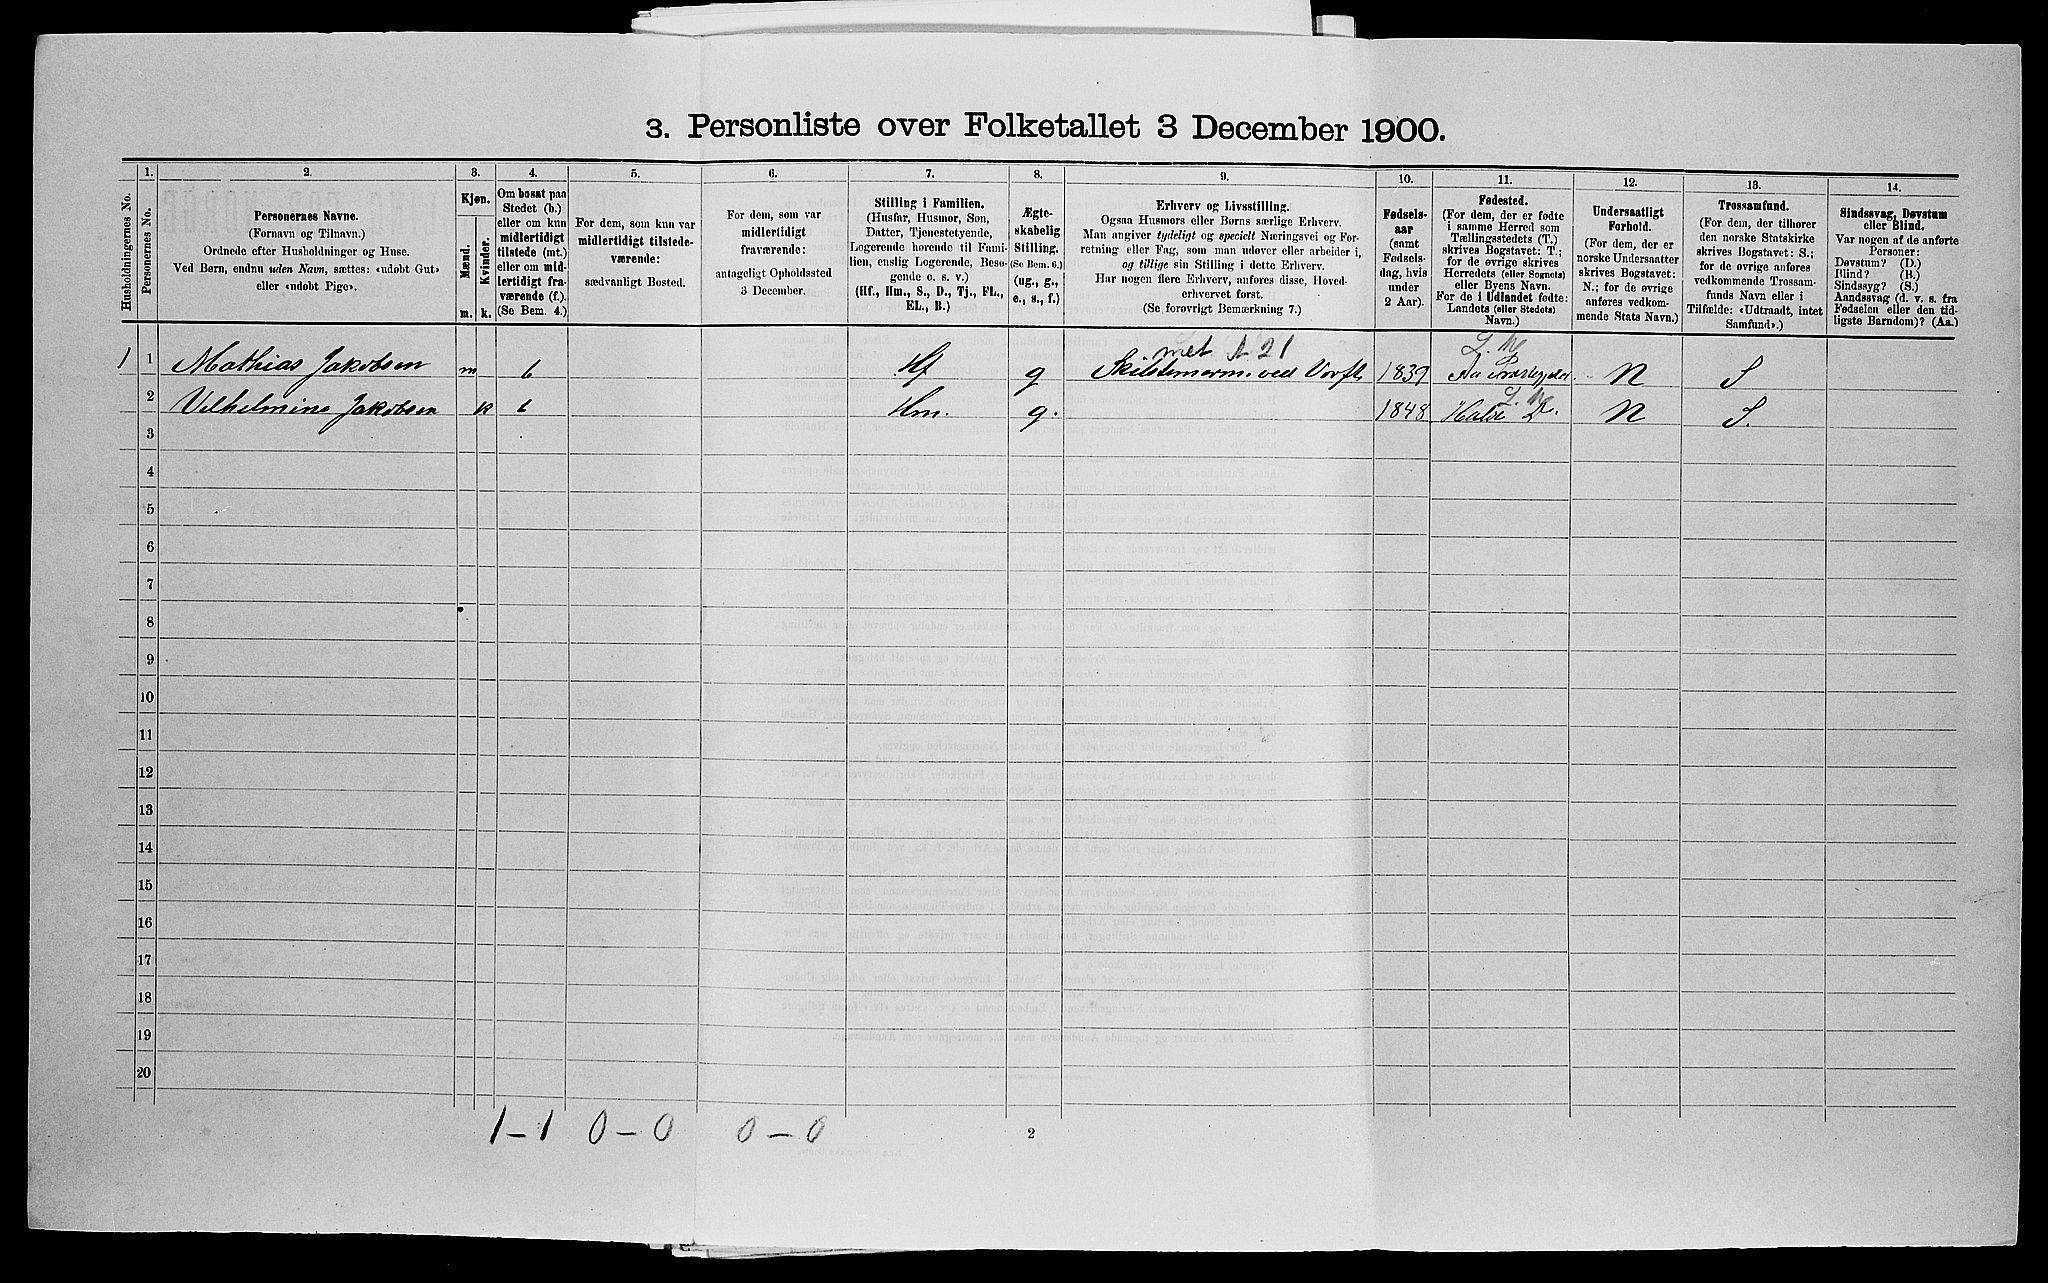 3. Personliste over Folketallet 3 December 1900.
Husholdningernes No.
1.
Personernes No.
2.
Personernes Navne.
(Fornavn og Tilnavn.)
Ordnede efter Husholdninger og Huse.
Ved Børn, endnu uden Navn, sættes: «udøbt Gut»
eller «udøbt Pige».
3.
Kjøn.
Mænd.
Kvinder.
m.
k.
4.
Om bosat paa
Stedet (b.)
eller om kun
midlertidigt
tilstede (mt.)
eller om mid-
lertidigt fra-
værende (f.).
(Se Bem. 4.)
5.
For dem, som kun var
midlertidigt tilstede-
værende:
sædvanligt Bosted.
6.
For dem, som var
midlertidigt
fraværende:
antageligt Opholdssted
3 December.
7.
Stilling i Familien.
(Husfar, Husmor, Søn,
Datter, Tjenestetyende,
Logerende hørende til Fami-
lien, enslig Logerende, Besø-
gende o. s. v.)
(Hf., Hm., S., D., Tj., FL.,
EL., B.)
8.
Ægte-
skabelig
Stilling.
(Se Bem. 6.)
(ug., g.,
e., s., f.)
9.
Erhverv og Livsstilling.
Ogsaa Husmors eller Børns særlige Erhverv.
Man angiver tydeligt og specielt Næringsvei og For-
retning eller Fag, som man udøver eller arbeider i,
og tillige sin Stilling i dette Erhverv.
Har nogen flere Erhverv, anføres disse, Hoved-
erhvervet først.
(Se forøvrigt Bemærkning 7.)
10.
Fødsels-
aar
(samt
Fødsels-
dag, hvis
under
2 Aar).
11.
Fødested.
(For dem, der er fødte
i samme Herred som
Tællingsstedets (T.)
skrives Bogstavet: T.;
for de øvrige skrives
Herredets (eller Sognets)
eller Byens Navn.
For de i Udlandet fødte:
Landets (eller Stedets)
Navn.)
12.
Undersaatligt
Forhold.
(For dem, der er
norske Undersaatter
skrives Bogstavet:
N.; for de øvrige
anføres vedkom-
mende Stats Navn.)
13.
Trossamfund.
(For dem, der tilhører
den norske Statskirke
skrives Bogstavet: S.;
for de øvrige anføres
vedkommende Trossam-
funds Navn eller i
Tilfælde: «Udtraadt, intet
Samfund».)
14.
Sindssvag, Døvstum
eller Blind.
Var nogen af de anførte
Personer:
Døvstum? (D.)
Blind? (B.)
Sindssyg? (S.)
Aandssvag (d. v. s. fra
Fødselen eller den tid-
ligste Barndom)? (Aa.)
met 21
L. M
1 1 Mathias Jakobsen m b Hf g ved 1839 N S
L. M
2 Vilhelmine Jakobsen k b Hm. g. 1848 Halse N S.
3
4
5
6
7
8
9
10
11
12
13
14
15
16
17
18
19
20
1-1 0-0 0-0
2